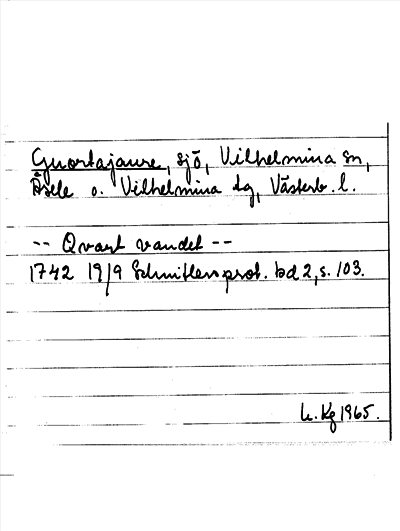 Guortajaure, sjö, Vilhelmina sn,
Åsele o. Vilhelmina dg, Västerb. l.
-- Qvart vandet --
1742 19/9 Schnitlers prot. bd 2, s. 103.
K. Kg 1965.